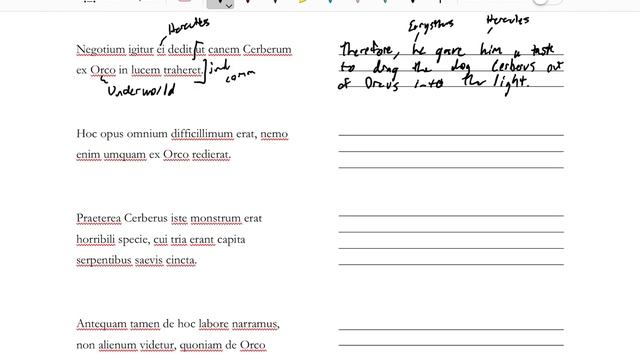 Hercules
Negotium igitur ei dedit ut canem Cerberum
ex Orco in lucem traheret. ind
comm
Underworld
Eurystheus Hercules
Therefore, he gave him a task
to drag the dog Cerberus out
of Orcus into the light.
Hoc opus omnium difficillimum erat, nemo
enim umquam ex Orco redierat.
Praeterea Cerberus iste monstrum erat
horribili specie, cui tria erant capita
serpentibus saevis cincta.
Antequam tamen de hoc labore narramus,
non alienum videtur, quoniam de Orco